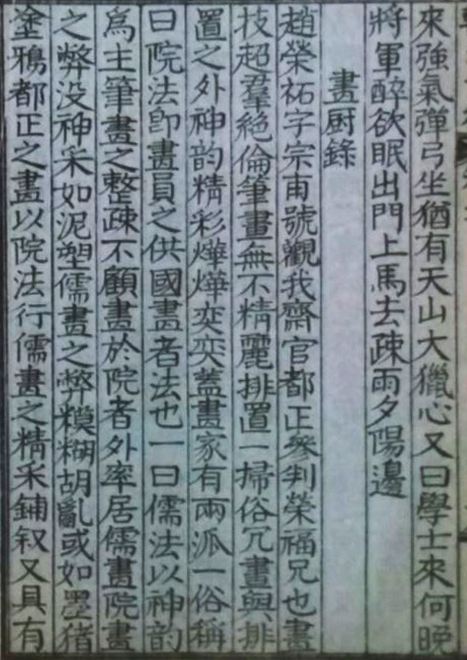 來強氣彈弓坐猶有天山大獵心又曰學士來何晚
將軍醉欲眠出門上馬去疎雨夕陽邊
畫廚錄
趙榮祏字宗甫號觀我齋官都正參判榮福兄也畫
技超羣絶倫筆畫無不精麗排置一掃俗冗畫與排
置之外神韵精彩燁燁奕奕蓋畫家有兩派一俗稱
曰院法卽畫員之供國畫者法也一曰儒法以神韵
爲主筆畫之整疎不顧畫於院者外率居儒畫院畫
之弊没神采如泥塑儒畫之弊糢糊胡亂或如墨猪
塗鴉都正之畫以院法行儒畫之精采鋪叙又具有